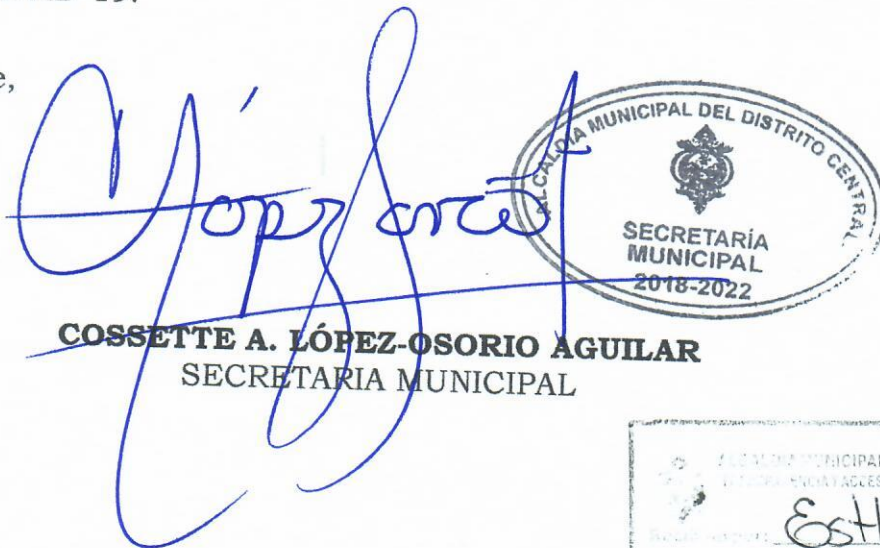 e,
ALCALDIA MUNICIPAL DEL DISTRITO CENTRAL
SECRETARÍA
MUNICIPAL
2018-2022
COSSETTE A. LÓPEZ-OSORIO AGUILAR
SECRETARIA MUNICIPAL
MUNICIPAL
EstH